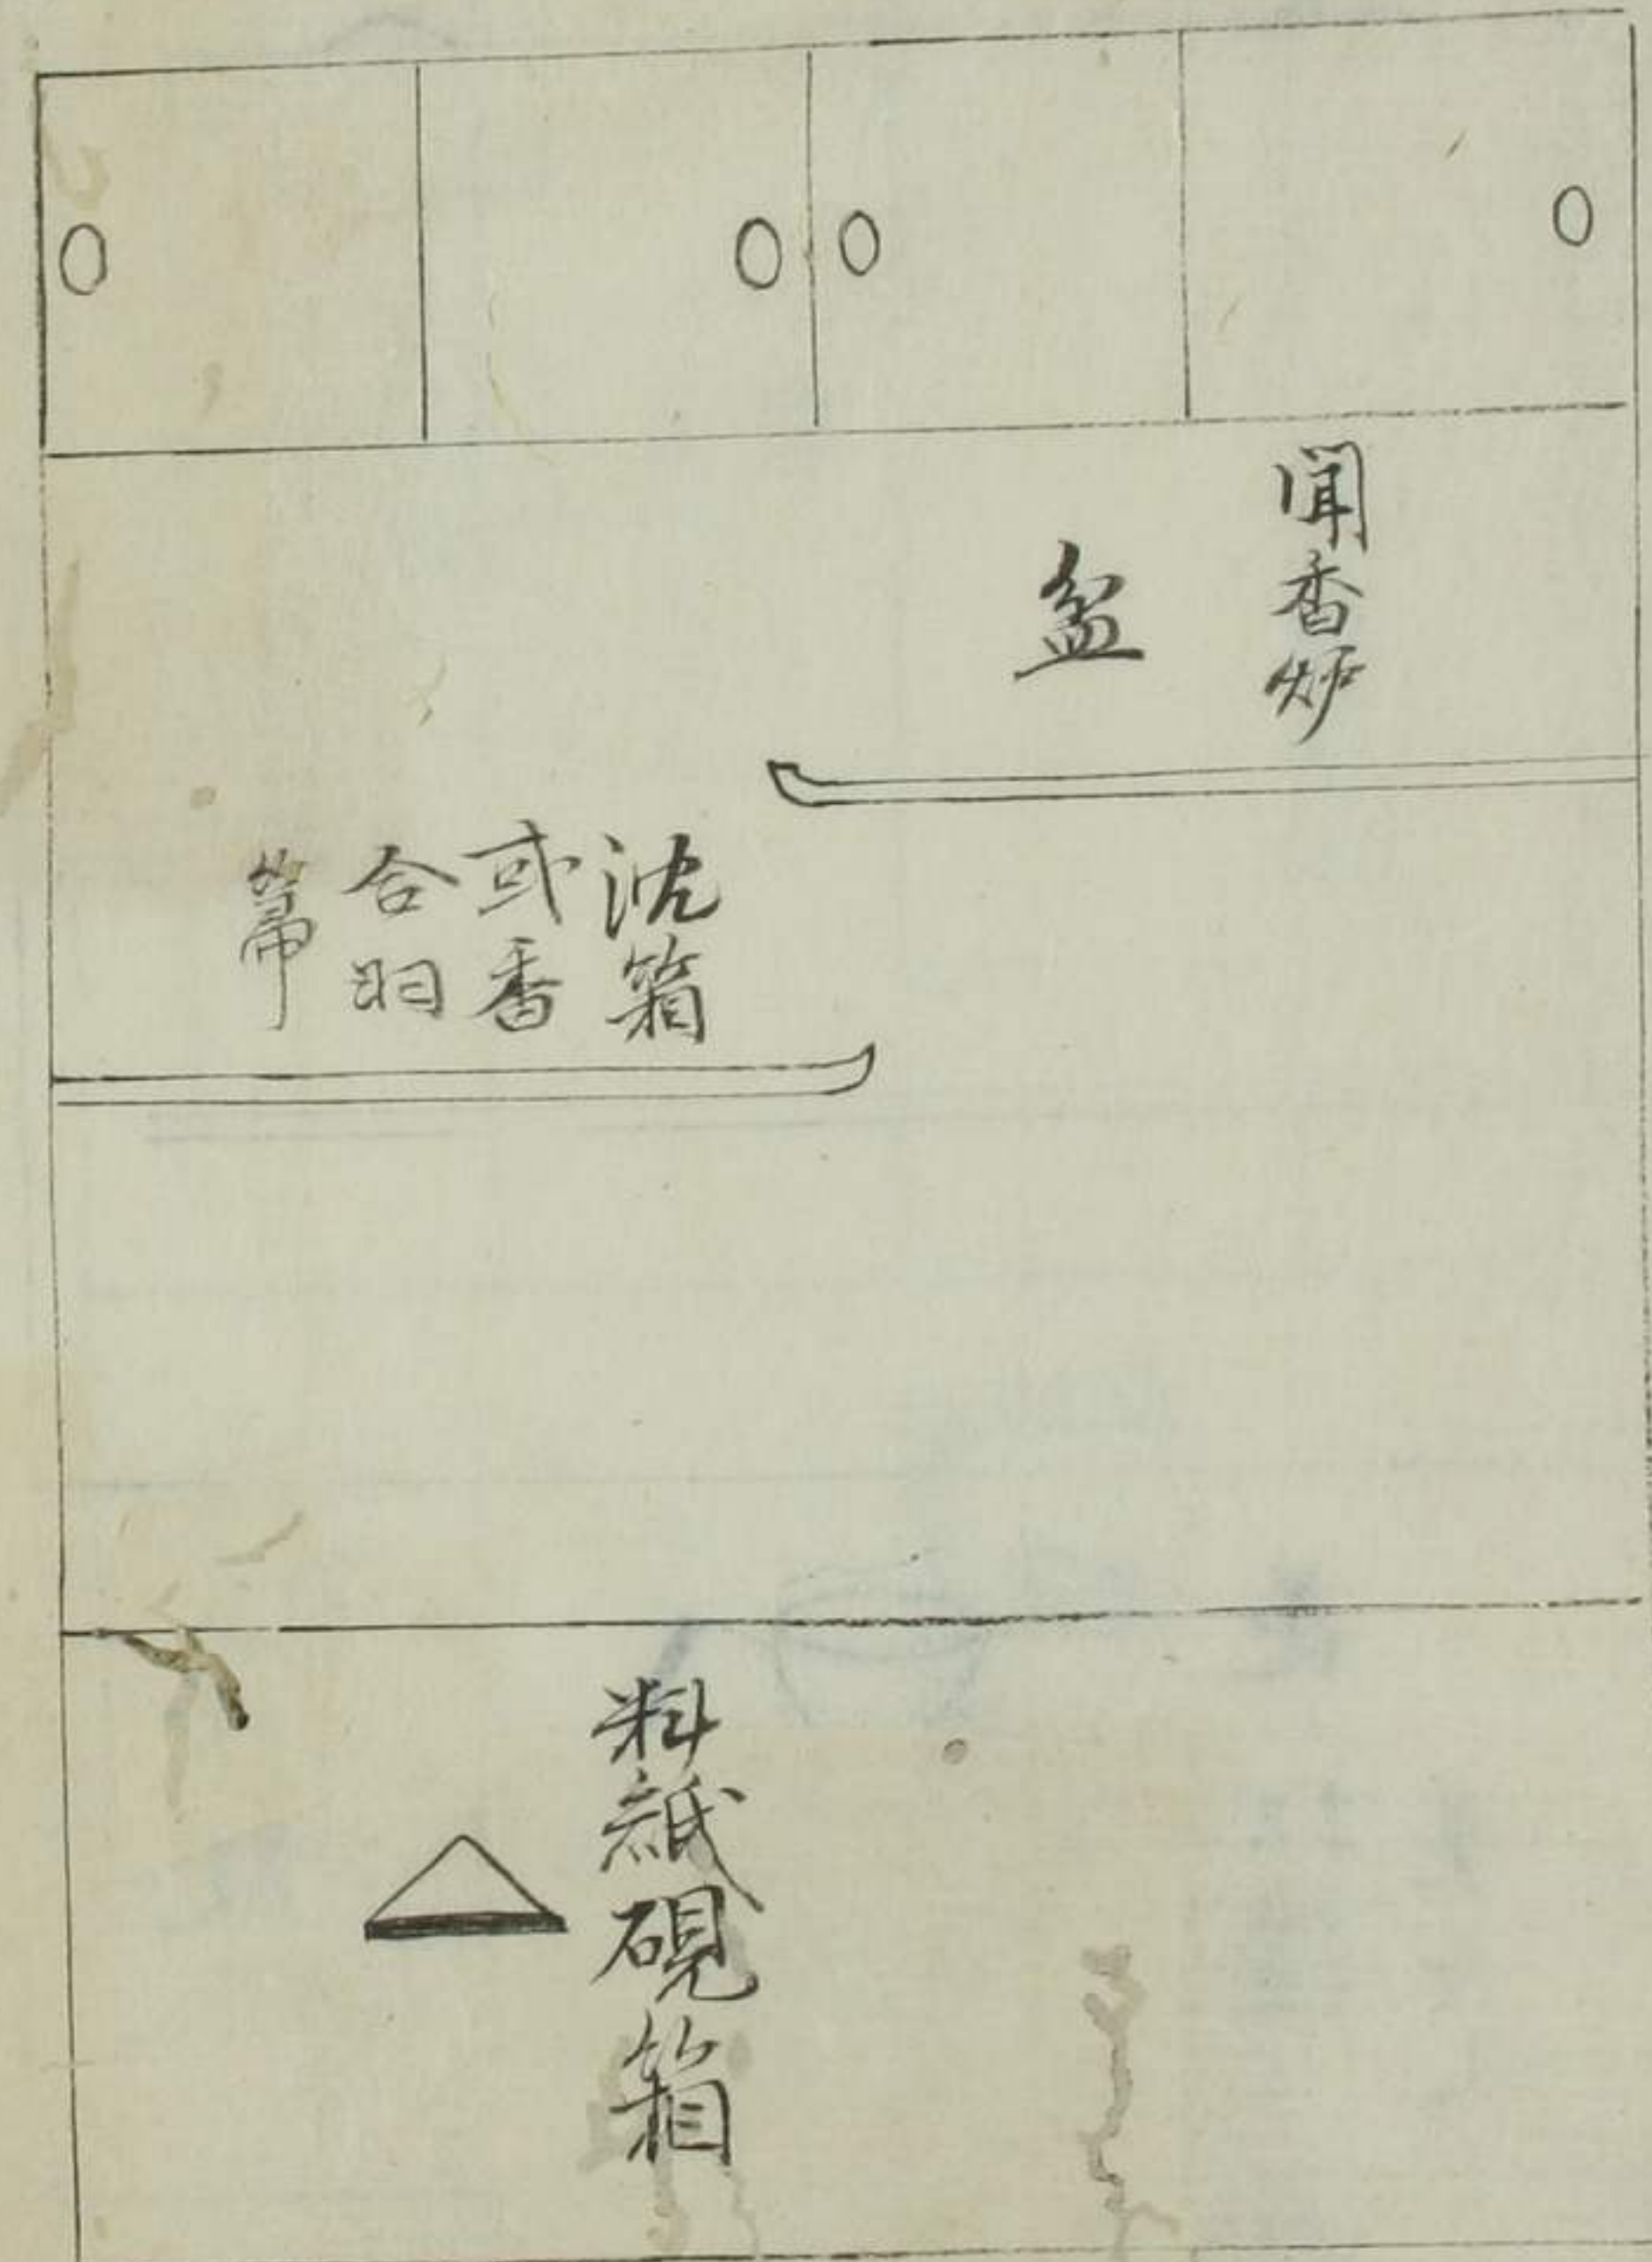 聞香炉
盆
沈箱
或香
合羽
箒
料紙硯箱